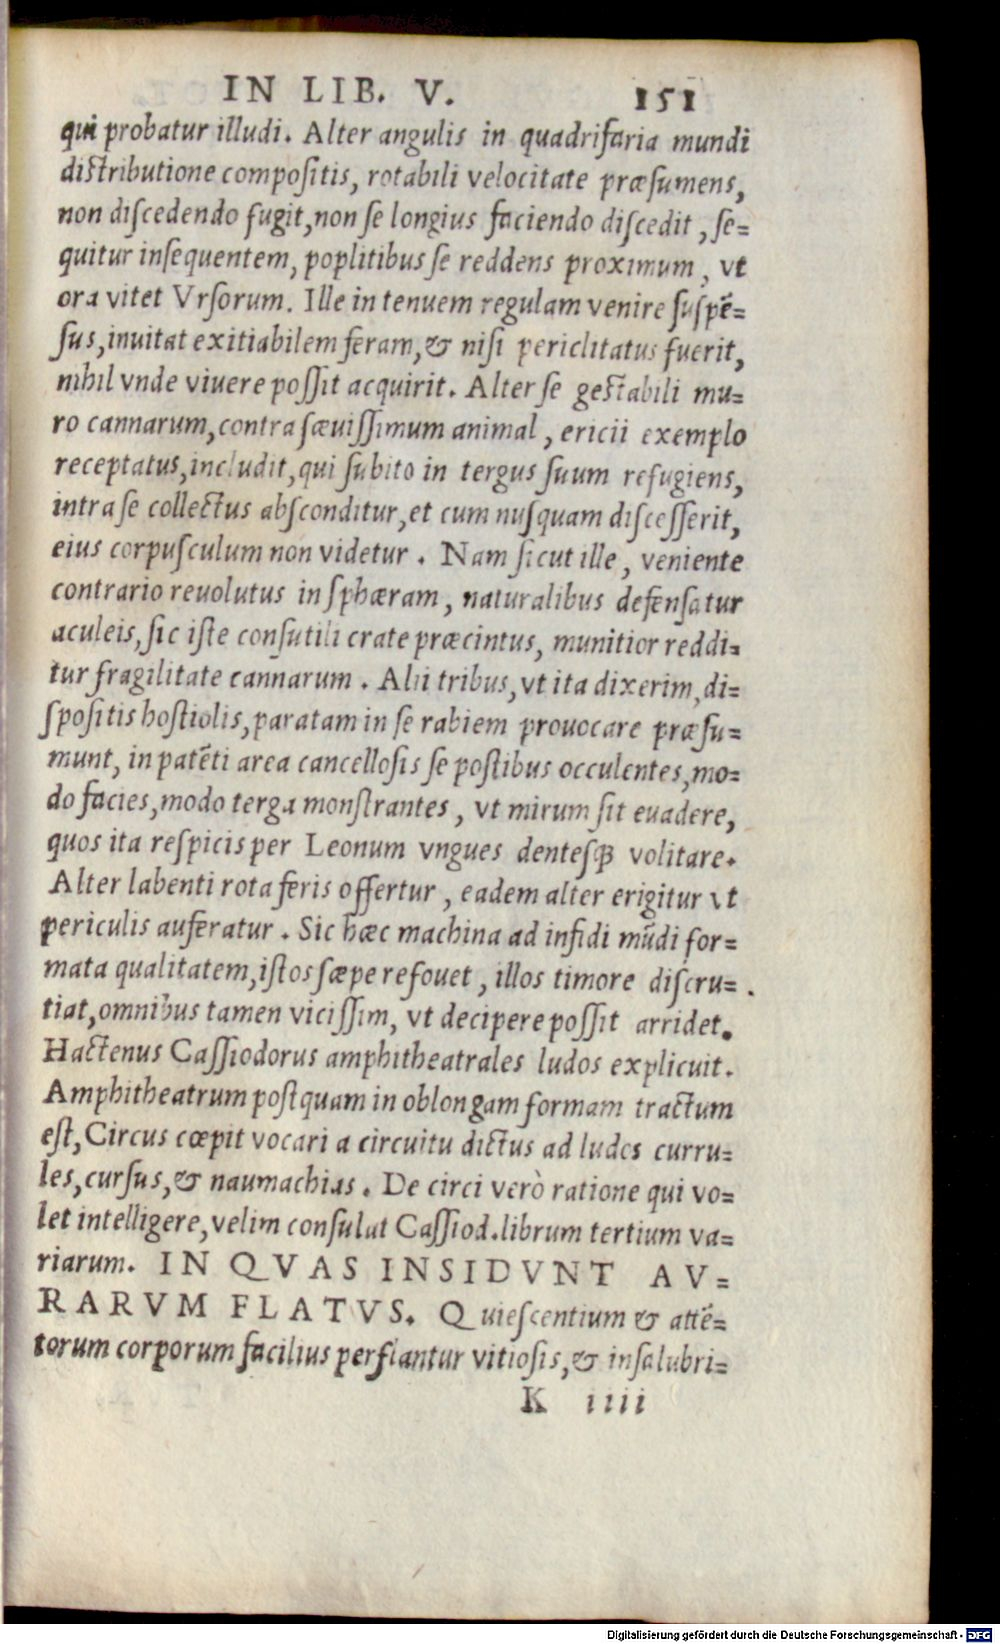 IN LIB. V. 151
qui probatur illudi. Alter angulis in quadrifaria mundi
distributione compositis, rotabili velocitate præsumens,
non discedendo fugit, non se longius faciendo discedit, se=
quitur insequentem, poplitibus se reddens proximum, vt
ora vitet Vrsorum. Ille in tenuem regulam venire suspẽ=
sus, inuitat exitiabilem feram, & nisi periclitatus fuerit,
nihil vnde viuere possit acquirit. Alter se gestabili mu=
ro cannarum, contra sæuissimum animal, ericii exemplo
receptatus, includit, qui subito in tergus suum refugiens,
intra se collectus absconditur, et cum nusquam discesserit,
eius corpusculum non videtur. Nam sicut ille, veniente
contrario reuolutus in sphæram, naturalibus defensatur
aculeis, sic iste consutili crate præcintus, munitior reddi=
tur fragilitate cannarum. Alii tribus, vt ita dixerim, di=
spositis hostiolis, paratam in se rabiem prouocare præsu=
munt, in patẽti area cancellosis se postibus occulentes, mo=
do facies, modo terga monstrantes, vt mirum sit euadere,
quos ita respicis per Leonum vngues dentesq; volitare.
Alter labenti rota feris offertur, eadem alter erigitur vt
periculis auferatur. Sic hæc machina ad infidi mũdi for=
mata qualitatem, istos sæpe refouet, illos timore discru=
tiat, omnibus tamen vicissim, vt decipere possit arridet.
Hactenus Cassiodorus amphitheatrales ludos explicuit.
Amphitheatrum postquam in oblongam formam tractum
est, Circus cœpit vocari a circuitu dictus ad ludos curru=
les, cursus, & naumachias. De circi verò ratione qui vo=
let intelligere, velim consulat Cassiod. librum tertium va=
riarum. IN QVAS INSIDVNT AV=
RARVM FLATVS. Quiescentium & attẽ=
torum corporum facilius perflantur vitiosis, & insalubri=
K iiii
Digitalisierung gefördert durch die Deutsche Forschungsgemeinschaft - DFG